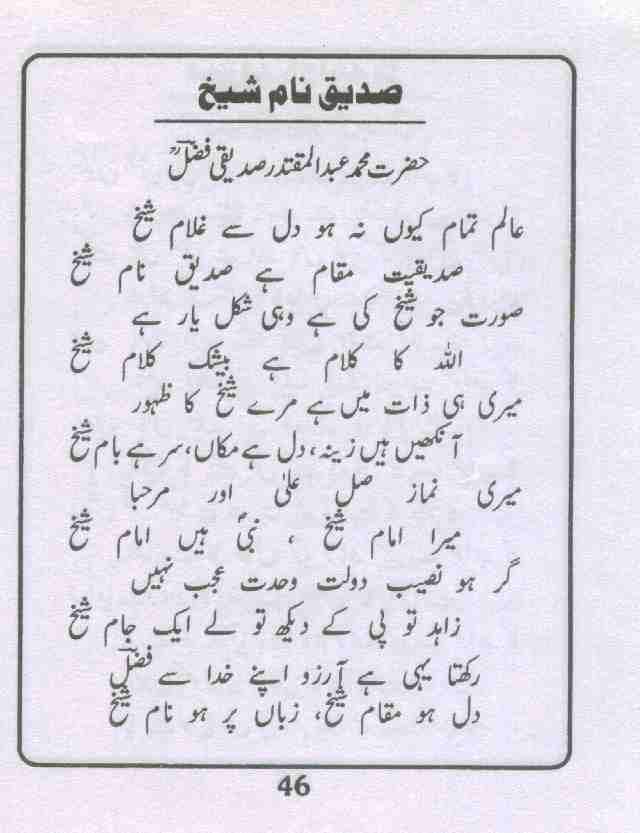 صدیق نام شیخ
حضرت محمد عبدالمقتدر صدیقی فضلؔؒ
عالم تمام کیوں نہ ہو دل سے غلام شیخ
صدیقیت مقام ہے صدیق نام شیخ
صورت جو شیخ کی ہے وہی شکل یار ہے
اللہ کا کلام ہے بیشک کلام شیخ
میری ہی ذات میں ہے مرے شیخ کا ظہور
آنکھیں ہیں زینہ، دل ہے مکاں، سر ہے بام شیخ
میری نماز صل علیٰ اور مرحبا
میرا امام شیخ ، نبیؐ ہیں امام شیخ
گر ہو نصیب دولت وحدت عجب نہیں
زاہد تو پی کے دیکھ تو لے ایک جام شیخ
رکھتا یہی ہے آرزو اپنے خدا سے فضلؔ
دل ہو مقام شیخ، زباں پر ہو نام شیخ
46